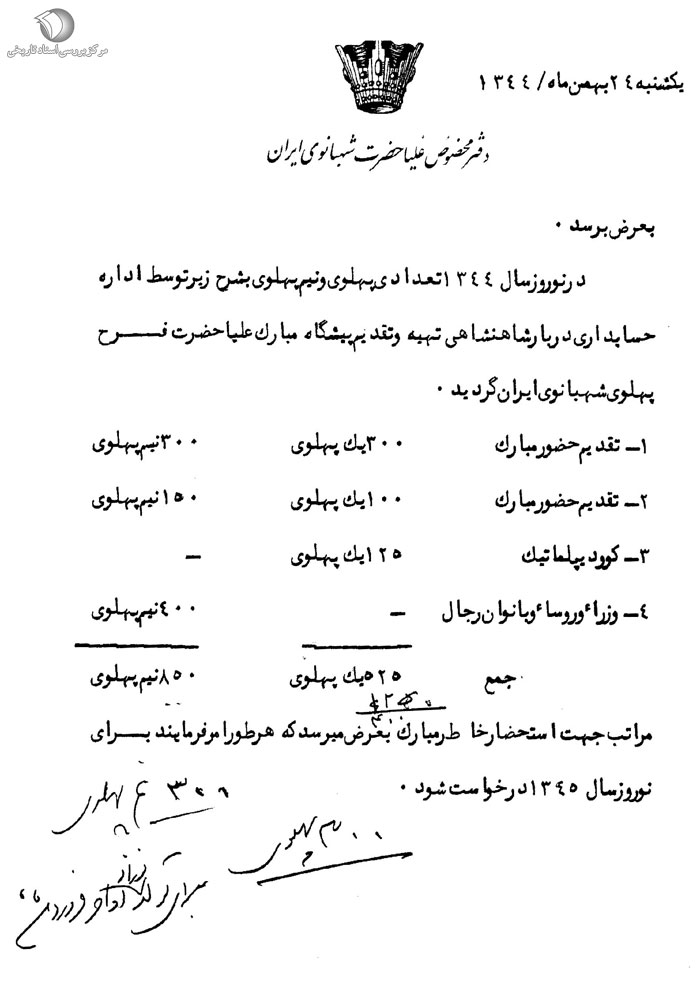 مرکز بررسی اسناد تاریخی
یکشنبه ۲۴ بهمن ماه / ۱۳۴۴
دفتر مخصوص علیا حضرت شهبانوی ایران
بعرض برسد .
در نوروز سال ۱۳۴۴ تعدادی پهلوی و نیم پهلوی بشرح زیر توسط اداره
حسابداری دربار شاهنشاهی تهیه و تقدیم پیشگاه مبارك علیا حضرت فرح
پهلوی شهبانوی ایران گردید .
۱ـ تقدیم حضور مبارك ۳۰۰ یك پهلوی ۳۰۰ نیم پهلوی
۲ـ تقدیم حضور مبارك ۱۰۰ یك پهلوی ۱۵۰ نیم پهلوی
۳ـ کوردیپلماتیك ۱۲۵ یك پهلوی ـ
۴ـ وزراء و روساء و بانوان رجال ـ ۴۰۰ نیم پهلوی
جمع ۵۲۵ یك پهلوی ۸۵۰ نیم پهلوی
مراتب جهت استحضار خاطر مبارك بعرض میرسد که هر طور امر فرمایند برای
نوروز سال ۱۳۴۵ درخواست شود .
۳۰۰ نیم پهلوی
پهلوی
برای